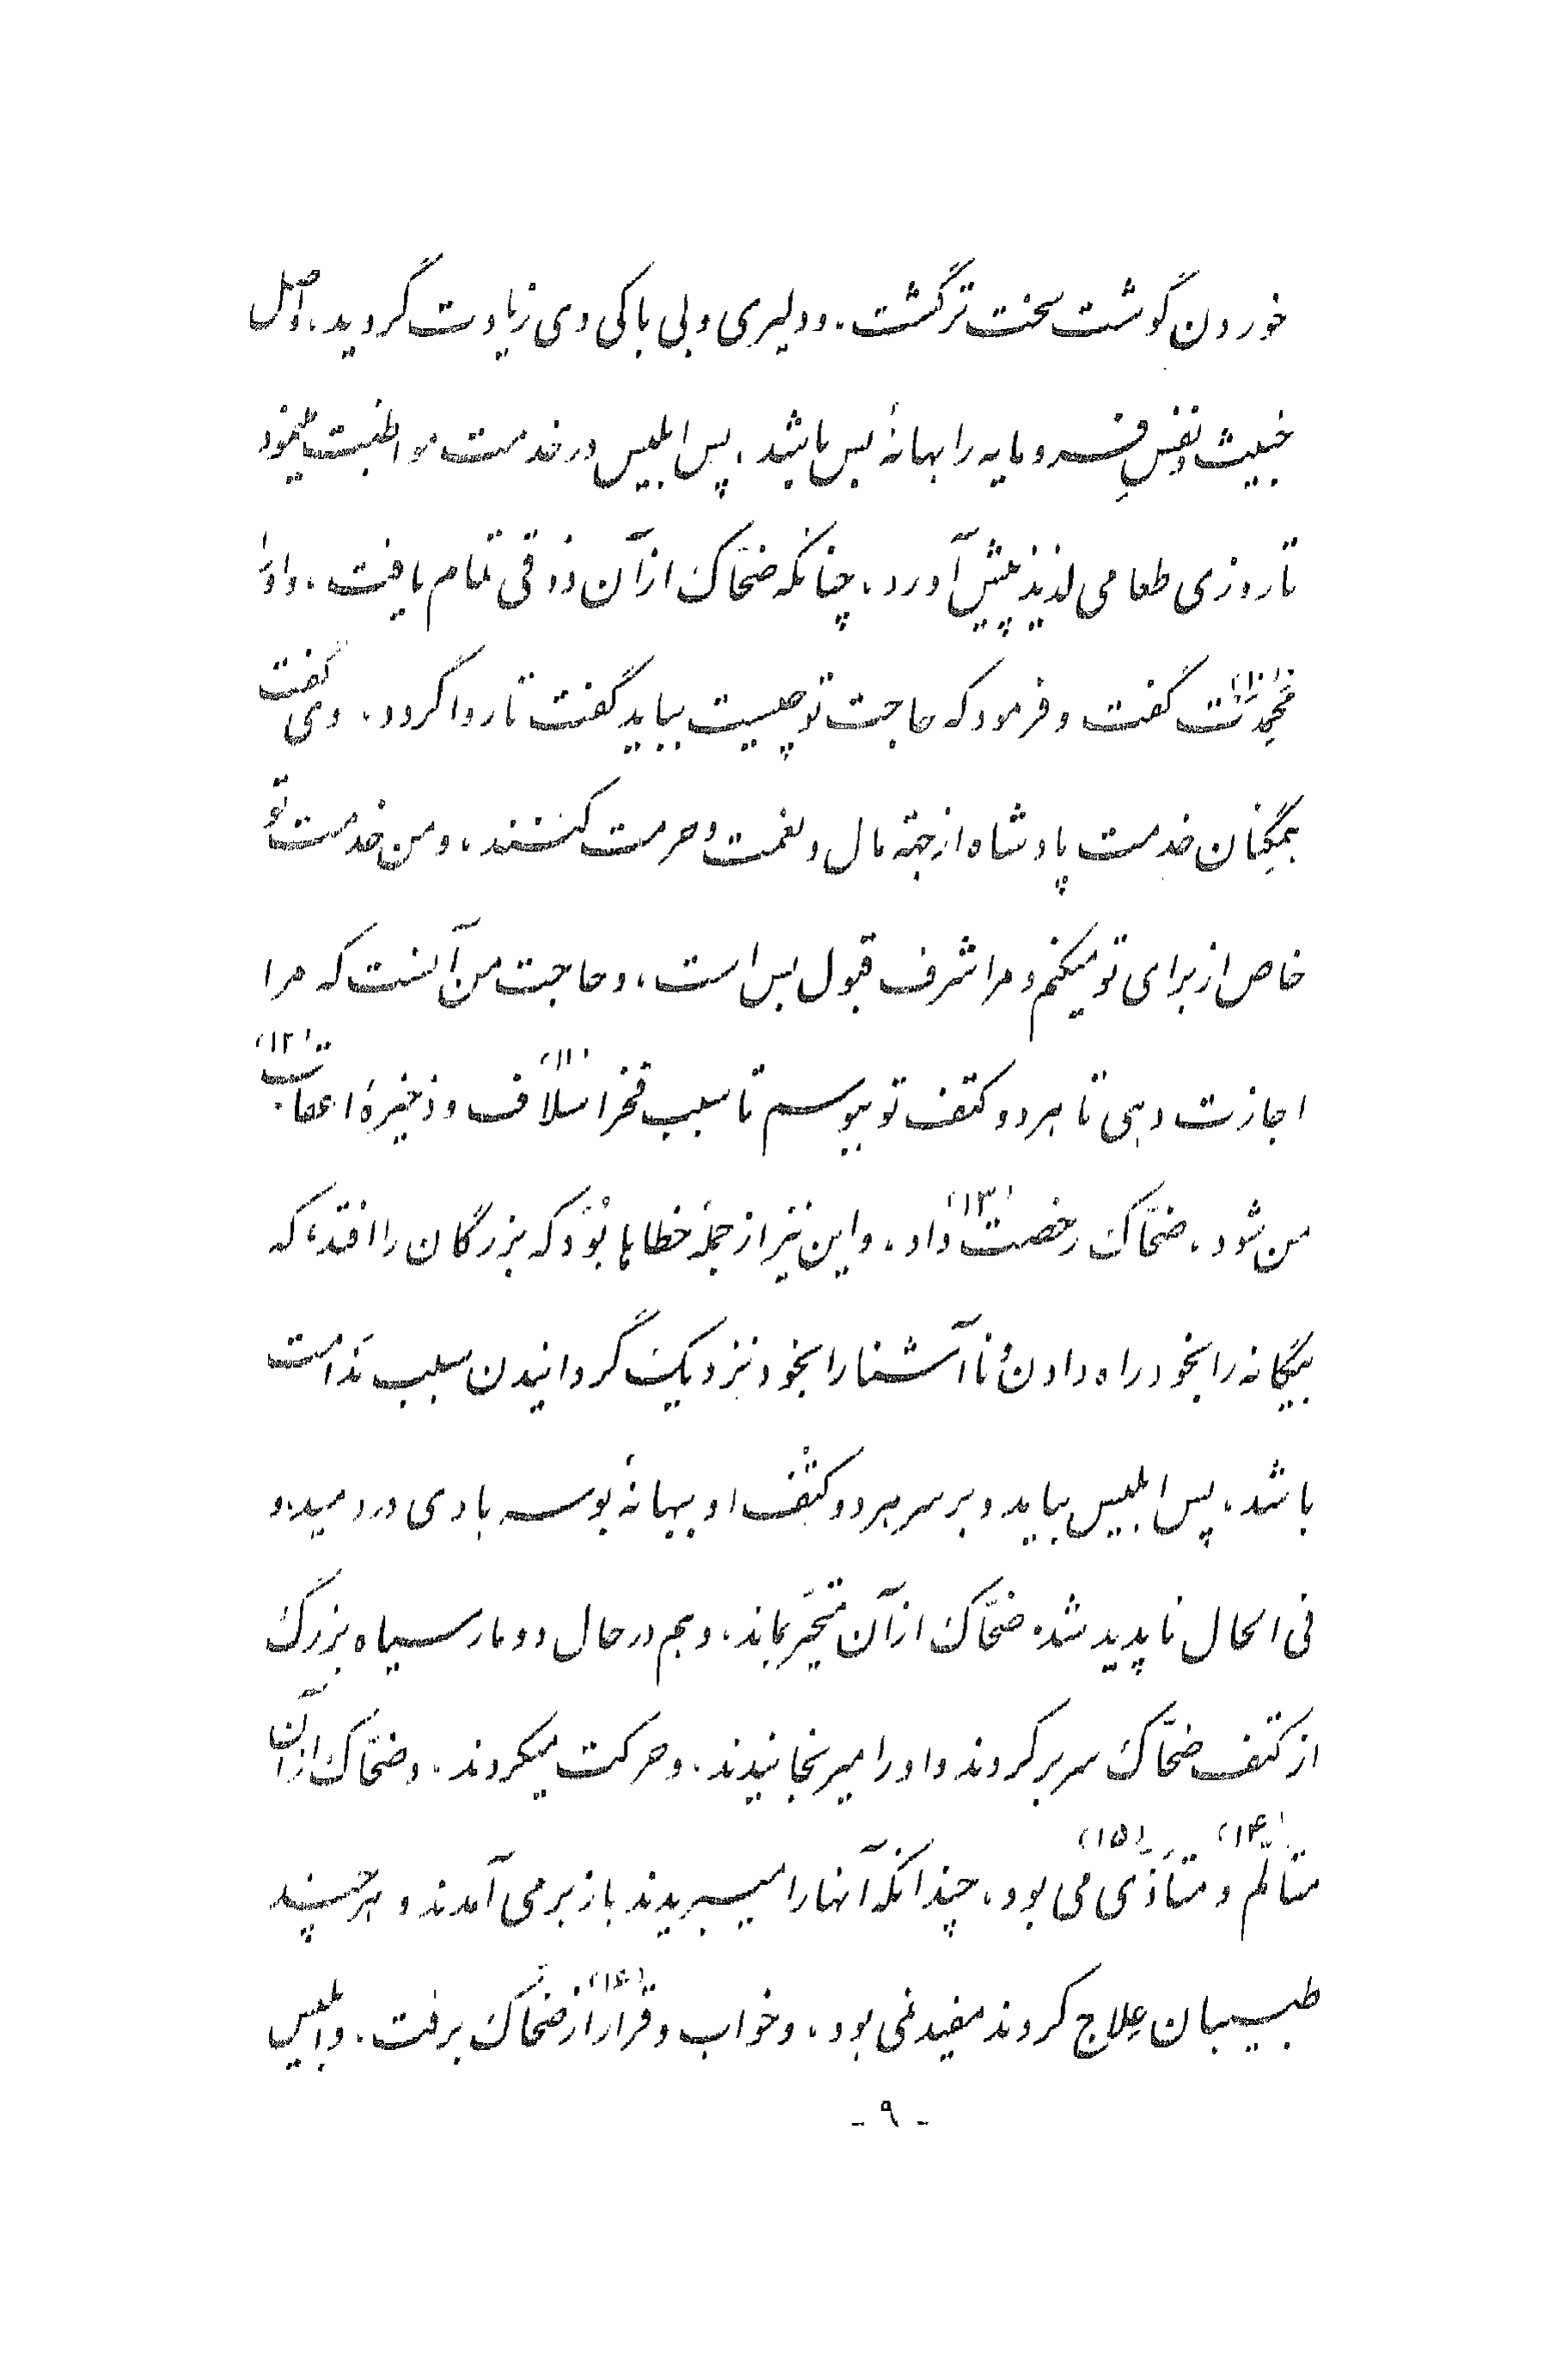 خوردن گوشت سخت‌تر گشت. و دلیری و بی‌باکی وی زیادت گردید، و اصل
خبیث و نفسِ فرومایه را بهانهٔ بس باشد، پس ابلیس در خدمت مواظبت مینمود
تا روزی طعامی لذیذ پیش آورد، چنانکه ضحّاک از آن ذوقی تمام یافت، و او را
مَحْمِدَت (۱۰) گفت و فرمود که حاجت تو چیست بباید گفت تا روا گردد. وی گفت
همگِنان خدمت پادشاه از جهة مال و نعمت و حرمت کنند، و من خدمت تو
خاص از برای تو میکنم و مرا شرف قبول بس است، و حاجت من آنست که مرا
اجازت دهی تا هر دو کتف تو ببوسم تا سبب فخر اسلاف (۱۱) و ذخیرهٔ اعقاب (۱۲)
من شود، ضحّاک رخصت (۱۳) داد، و این نیز از جملهٔ خطاها بُوَد که بزرگان را افتد، که
بیگانه را بخود راه دادن و ناآشنا را بخود نزدیک گردانیدن سبب نَدامت
باشد، پس ابلیس بیاید و بر سر هر دو کتف او ببهانهٔ بوسه بادی در دمید، و
فی الحال ناپدید شد. ضحّاک از آن متحیّر بماند، و هم در حال دو مار سیاه بزرگ
از کتف ضحّاک سر بر کردند و او را میرنجانیدند. و حرکت میکردند. و ضحّاک از آن
متألّم (۱۴) و متأذّی (۱۵) می‌بود، چندانکه آنها را میبریدند باز برمی‌آمدند و هرچند
طبیبان عِلاج کردند مفید نمی‌بود، و خواب و قرار (۱۶) از ضحّاک برفت. و ابلیس
- ۹ -